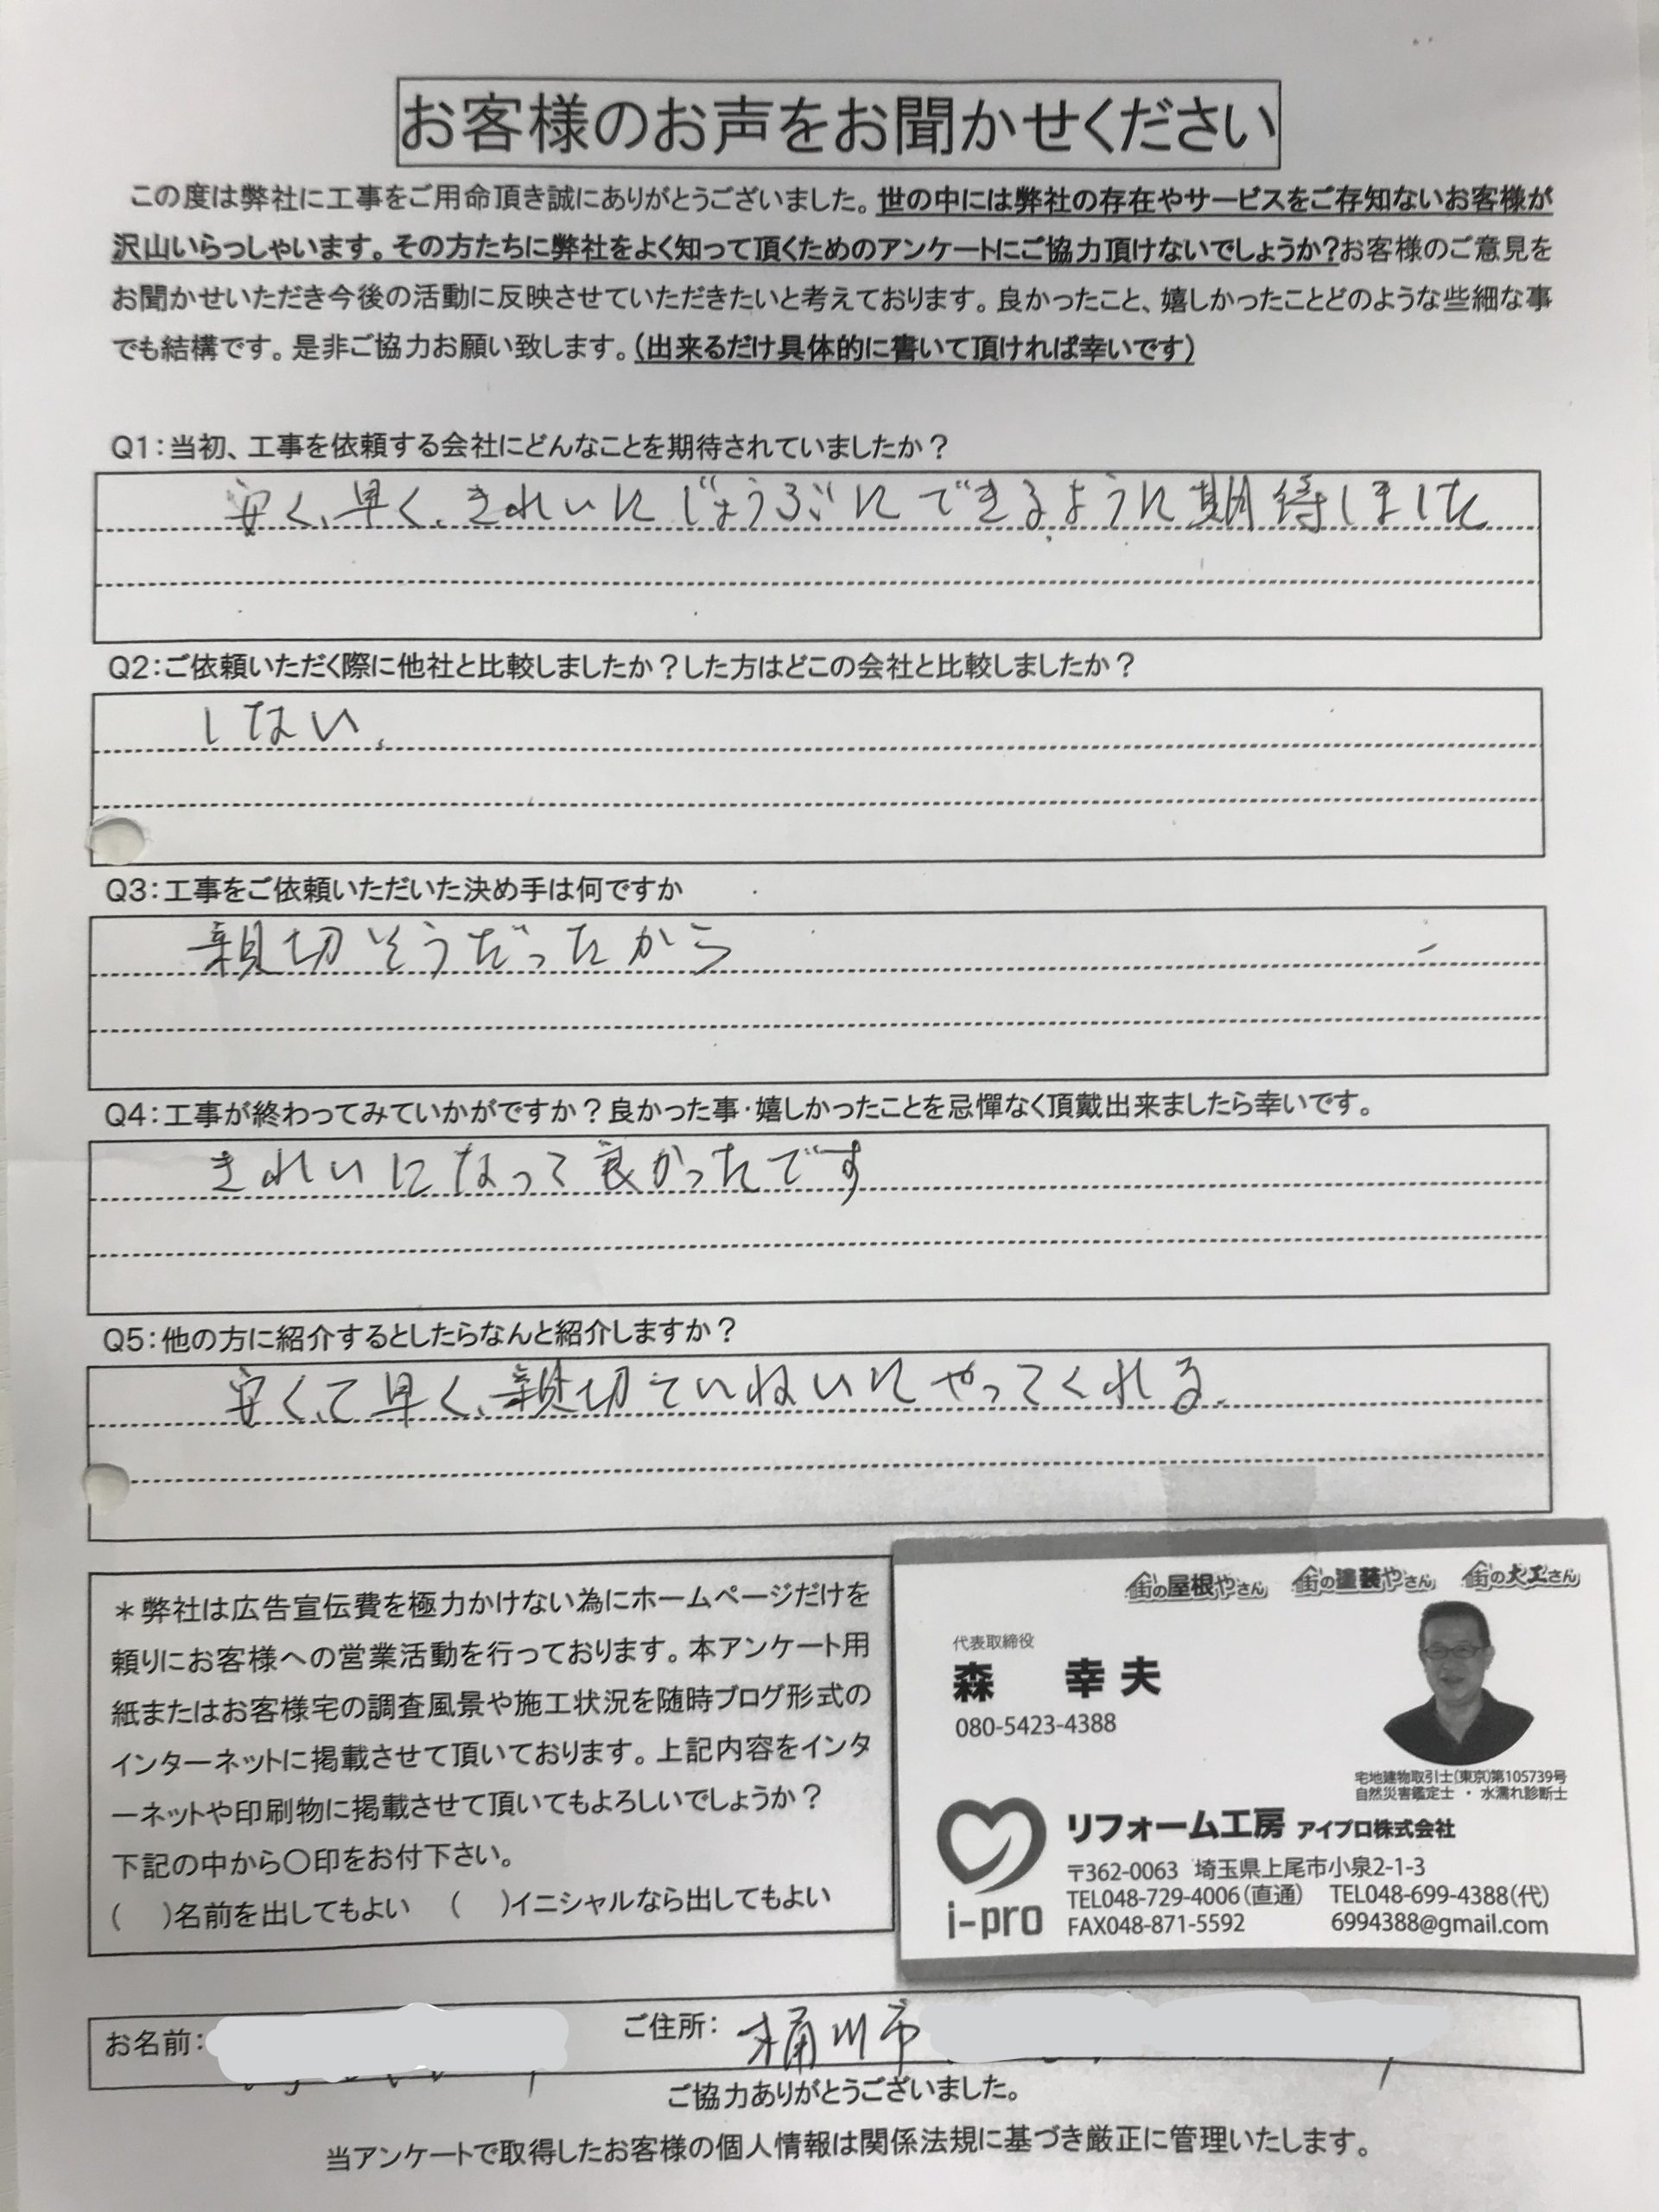 お客様のお声をお聞かせください
この度は弊社に工事をご用命頂き誠にありがとうございました。世の中には弊社の存在やサービスをご存知ないお客様が
沢山いらっしゃいます。その方たちに弊社をよく知って頂くためのアンケートにご協力頂けないでしょうか?お客様のご意見を
お聞かせいただき今後の活動に反映させていただきたいと考えております。良かったこと、嬉しかったことどのような些細な事
でも結構です。是非ご協力お願い致します。(出来るだけ具体的に書いて頂ければ幸いです)
Q1:当初、工事を依頼する会社にどんなことを期待されていましたか?
安く、早く、きれいにじょうぶにできるように期待しました
Q2:ご依頼いただく際に他社と比較しましたか?した方はどこの会社と比較しましたか?
しない。
Q3:工事をご依頼いただいた決め手は何ですか
親切そうだったから
Q4:工事が終わってみていかがですか?良かった事・嬉しかったことを忌憚なく頂戴出来ましたら幸いです。
きれいになって良かったです
Q5:他の方に紹介するとしたらなんと紹介しますか?
安くて早く、親切ていねいにやってくれる。
*弊社は広告宣伝費を極力かけない為にホームページだけを
頼りにお客様への営業活動を行っております。本アンケート用
紙またはお客様宅の調査風景や施工状況を随時ブログ形式の
インターネットに掲載させて頂いております。上記内容をインタ
ーネットや印刷物に掲載させて頂いてもよろしいでしょうか?
下記の中から〇印をお付下さい。
( )名前を出してもよい ( )イニシャルなら出してもよい
街の屋根やさん 街の塗装やさん 街の大工さん
代表取締役
森 幸夫
080-5423-4388
宅地建物取引士(東京)第105739号
自然災害鑑定士 ・ 水濡れ診断士
i-pro
リフォーム工房 アイプロ株式会社
〒362-0063 埼玉県上尾市小泉2-1-3
TEL048-729-4006(直通) TEL048-699-4388(代)
FAX048-871-5592 6994388@gmail.com
お名前: ご住所: 桶川市
ご協力ありがとうございました。
当アンケートで取得したお客様の個人情報は関係法規に基づき厳正に管理いたします。